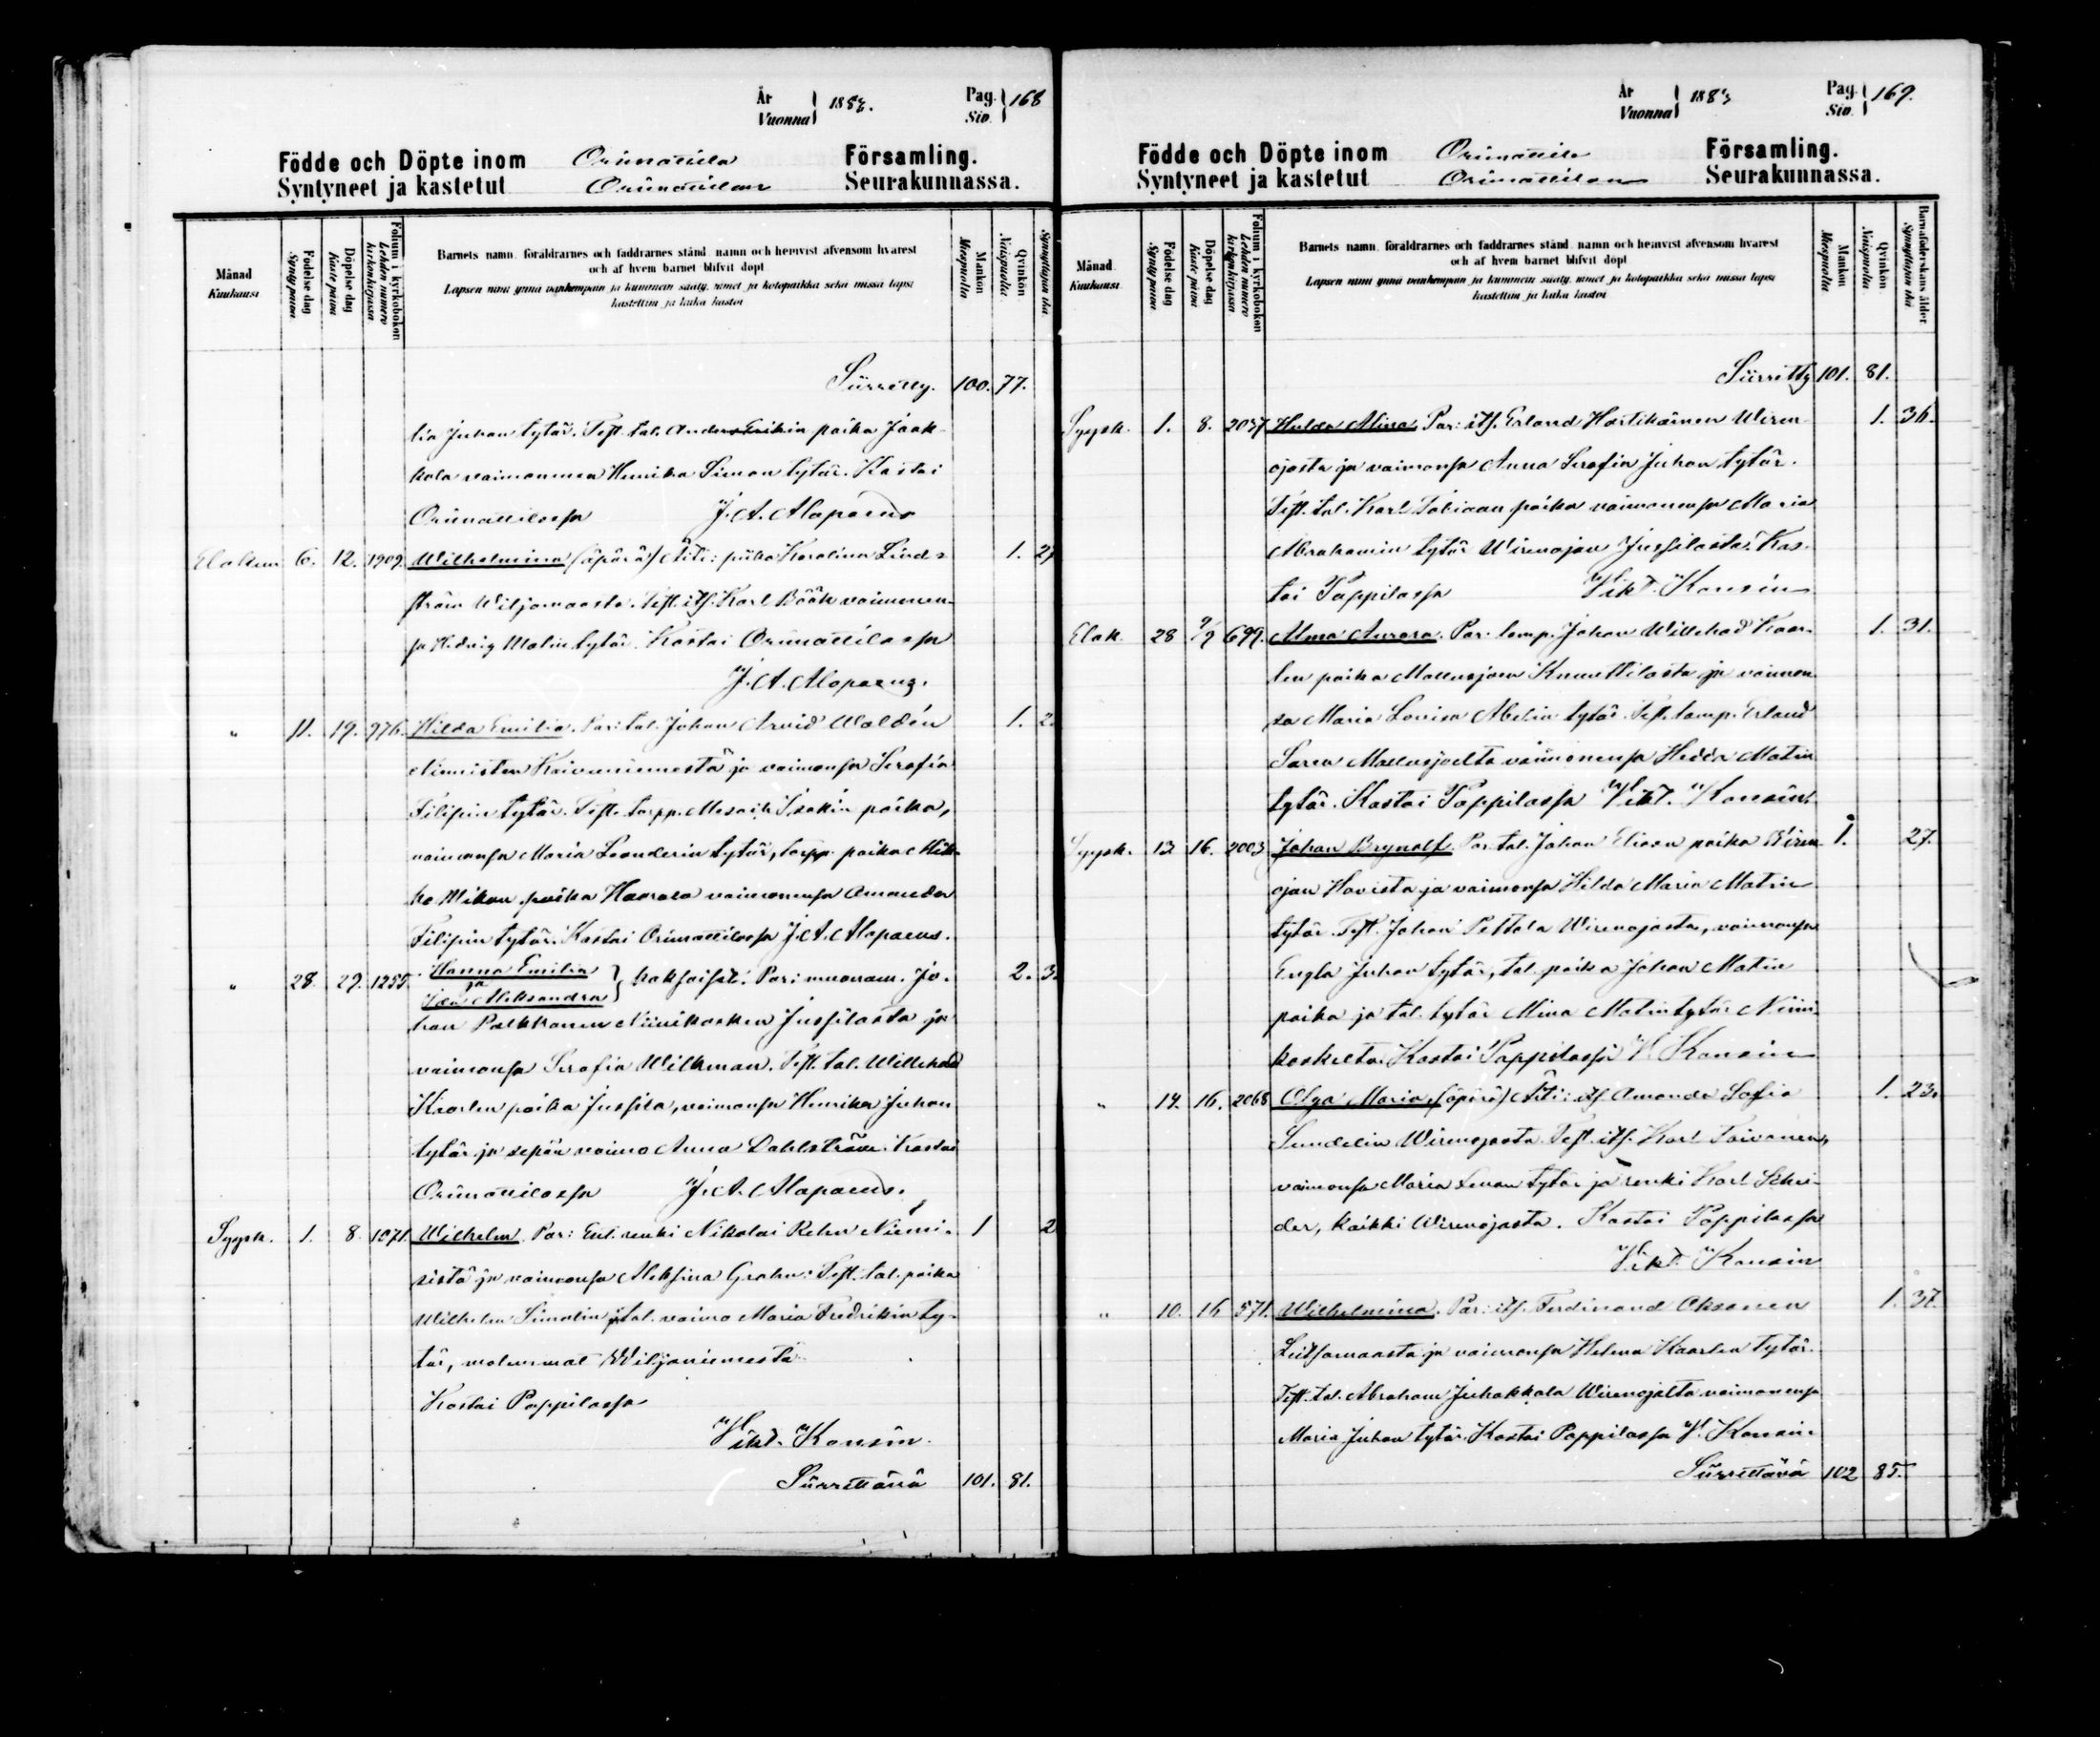 År
Vuonna } 1883.
Pag.
Siv. } 168
Födde och Döpte inom Orimattila Församling.
Syntyneet ja kastetut Orimattilan Seurakunnassa.
Månad
Kuukausi
Födelse dag
Synty päivä
Döpelse dag
Kaste päivä
Folium i kyrkobokon
Lehden numero kirkonkirjassa
Barnets namn, föräldrarnes och faddrarnes stånd, namn och hemvist äfvensom hvarest
och af hvem barnet blifvit döpt
Lapsen nimi ynnä vanhempain ja kummein sääty, nimet ja kotopaikka sekä missä lapsi
kastettiin ja kuka kastoi
Mankön
Miespuolia
Qvinkön
Naispuolia
Synnyttäjän ikä
Siirretty. 100. 77.
lia Juhan tytär. Test. tal. Anders Erikin poika Jaak-
kola vaimonnen Henrika Simon tytär. Kastoi
Orimattilassa J. A. Alopaeus
Elokuu 6. 12. 1909. Wilhelmina (äpärä) Äiti: piika Karolina Lind- 1. 2
ström Wiljamaasta. Test. its. Karl Böök vaimonen-
sa Hedvig Matin tytär. Kastoi Orimattilassa
J. A. Alopaeus.
" 11. 19. 976. Hilda Emilia. Par: tal. Johan Arvid Waldén 1. 2.
Niemisten Kaivaniemestä ja vaimonsa Serafia
Filipin tytär. Test. torpp. Mesaik Isakin poika,
vaimonsa Maria Leanderin tytär, torpp. poika Mik-
ko Mikon poika Haarala vaimonensa Amanda
Filipin tytär. Kastoi Orimattilassa J. A. Alopaeus.
" 28. 29. 1255. Hanna Emilia
ja
Ida Aleksandra } kaksoiset. Par: muonam. Jo- 2. 3.
han Pakkanen Niinikosken Jussilasta ja
vaimonsa Serafia Wilkman. Test. tal. Willehad
Kaarlen poika Jussila, vaimonsa Henrika Juhan
tytär ja sepän vaimo Anna Dahlström. Kastoi
Orimattilassa J. A. Alopaeus.
Syysk. 1. 8. 1071. Wilhelm. Par: Ent. renki Nikolai Rehn Niemi- 1 2
sistä ja vaimonsa Aleksina Grahn. Test. tal. poika
Wilhelm Simolin ja tal. vaimo Maria Fredrikin ty-
tär, molemmat Wiljaniemestä
Kastoi Pappilassa
Vikt. Konsin.
Siirrettävä 101. 81.
År
Vuonna } 1883
Pag.
Siv. } 169.
Födde och Döpte inom Orimattila Församling.
Syntyneet ja kastetut Orimattilan Seurakunnassa.
Månad
Kuukausi
Födelse dag
Synty päivä
Döpelse dag
Kaste päivä
Folium i kyrkobokon
Lehden numero kirkonkirjassa
Barnets namn, föräldrarnes och faddrarnes stånd, namn och hemvist äfvensom hvarest
och af hvem barnet blifvit döpt
Lapsen nimi ynnä vanhempain ja kummein sääty, nimet ja kotopaikka sekä missä lapsi
kastettiin ja kuka kastoi
Mankön
Miespuolia
Qvinkön
Naispuolia
Barnaföderskans ålder
Synnyttäjän ikä
Siirretty 101. 81.
Syysk. 1. 8. 2037 Hulda Mina. Par: its. Erland Hartikainen Wiren- 1. 36.
ojasta ja vaimonsa Anna Serafia Juhan tytär.
Test. tal. Karl Tobiaan poika vaimonensa Maria
Abrahamin tytär Wirenojan Jussilasta. Kas-
toi Pappilassa Vikt. Konsin
Elok. 28 9/9 699. Alma Aurora. Par: lamp. Johan Willehad Kaar- 1. 31.
len poika Mallusjoen Knuuttilasta ja vaimon-
sa Maria Lovisa Abelin tytär. Test. lamp. Erland
Saren Mallusjoelta vaimonensa Hedda Matin
tytär. Kastoi Pappilassa Vikt. Konsin.
Syysk. 13 16. 2003 Johan Brynolf. Par. tal. Johan Eliaan poika Wiren- 1. 27.
ojan Hovista ja vaimonsa Hilda Maria Matin
tytär. Test. Johan Peltola Wirenojasta, vaimonsa
Engla Juhan tytär, tal. poika Johan Matin
poika ja tal. tytär Mina Matin tytär Niini-
koskelta. Kastoi Pappilassa V. Konsin
" 14. 16. 2068 Olga Maria, (äpärä) Äiti: its. Amanda Sofia 1. 23.
Sundelin Wirenojasta. Test. its. Karl Toivonen,
vaimonsa Maria Leenan tytär ja renki Karl Schri-
der, kaikki Wirenojasta. Kastoi Pappilassa
Vikt. Konsin
" 10. 16 571. Wilhelmina. Par: its. Ferdinand Oksanen 1. 37.
Leitsamaasta ja vaimonsa Helena Kaarlen tytär.
Test. tal. Abraham Juhakkala Wirenojalta vaimonensa
Maria Juhan tytär. Kastoi Pappilassa V. Konsin.
Siirrettävä 102 85.